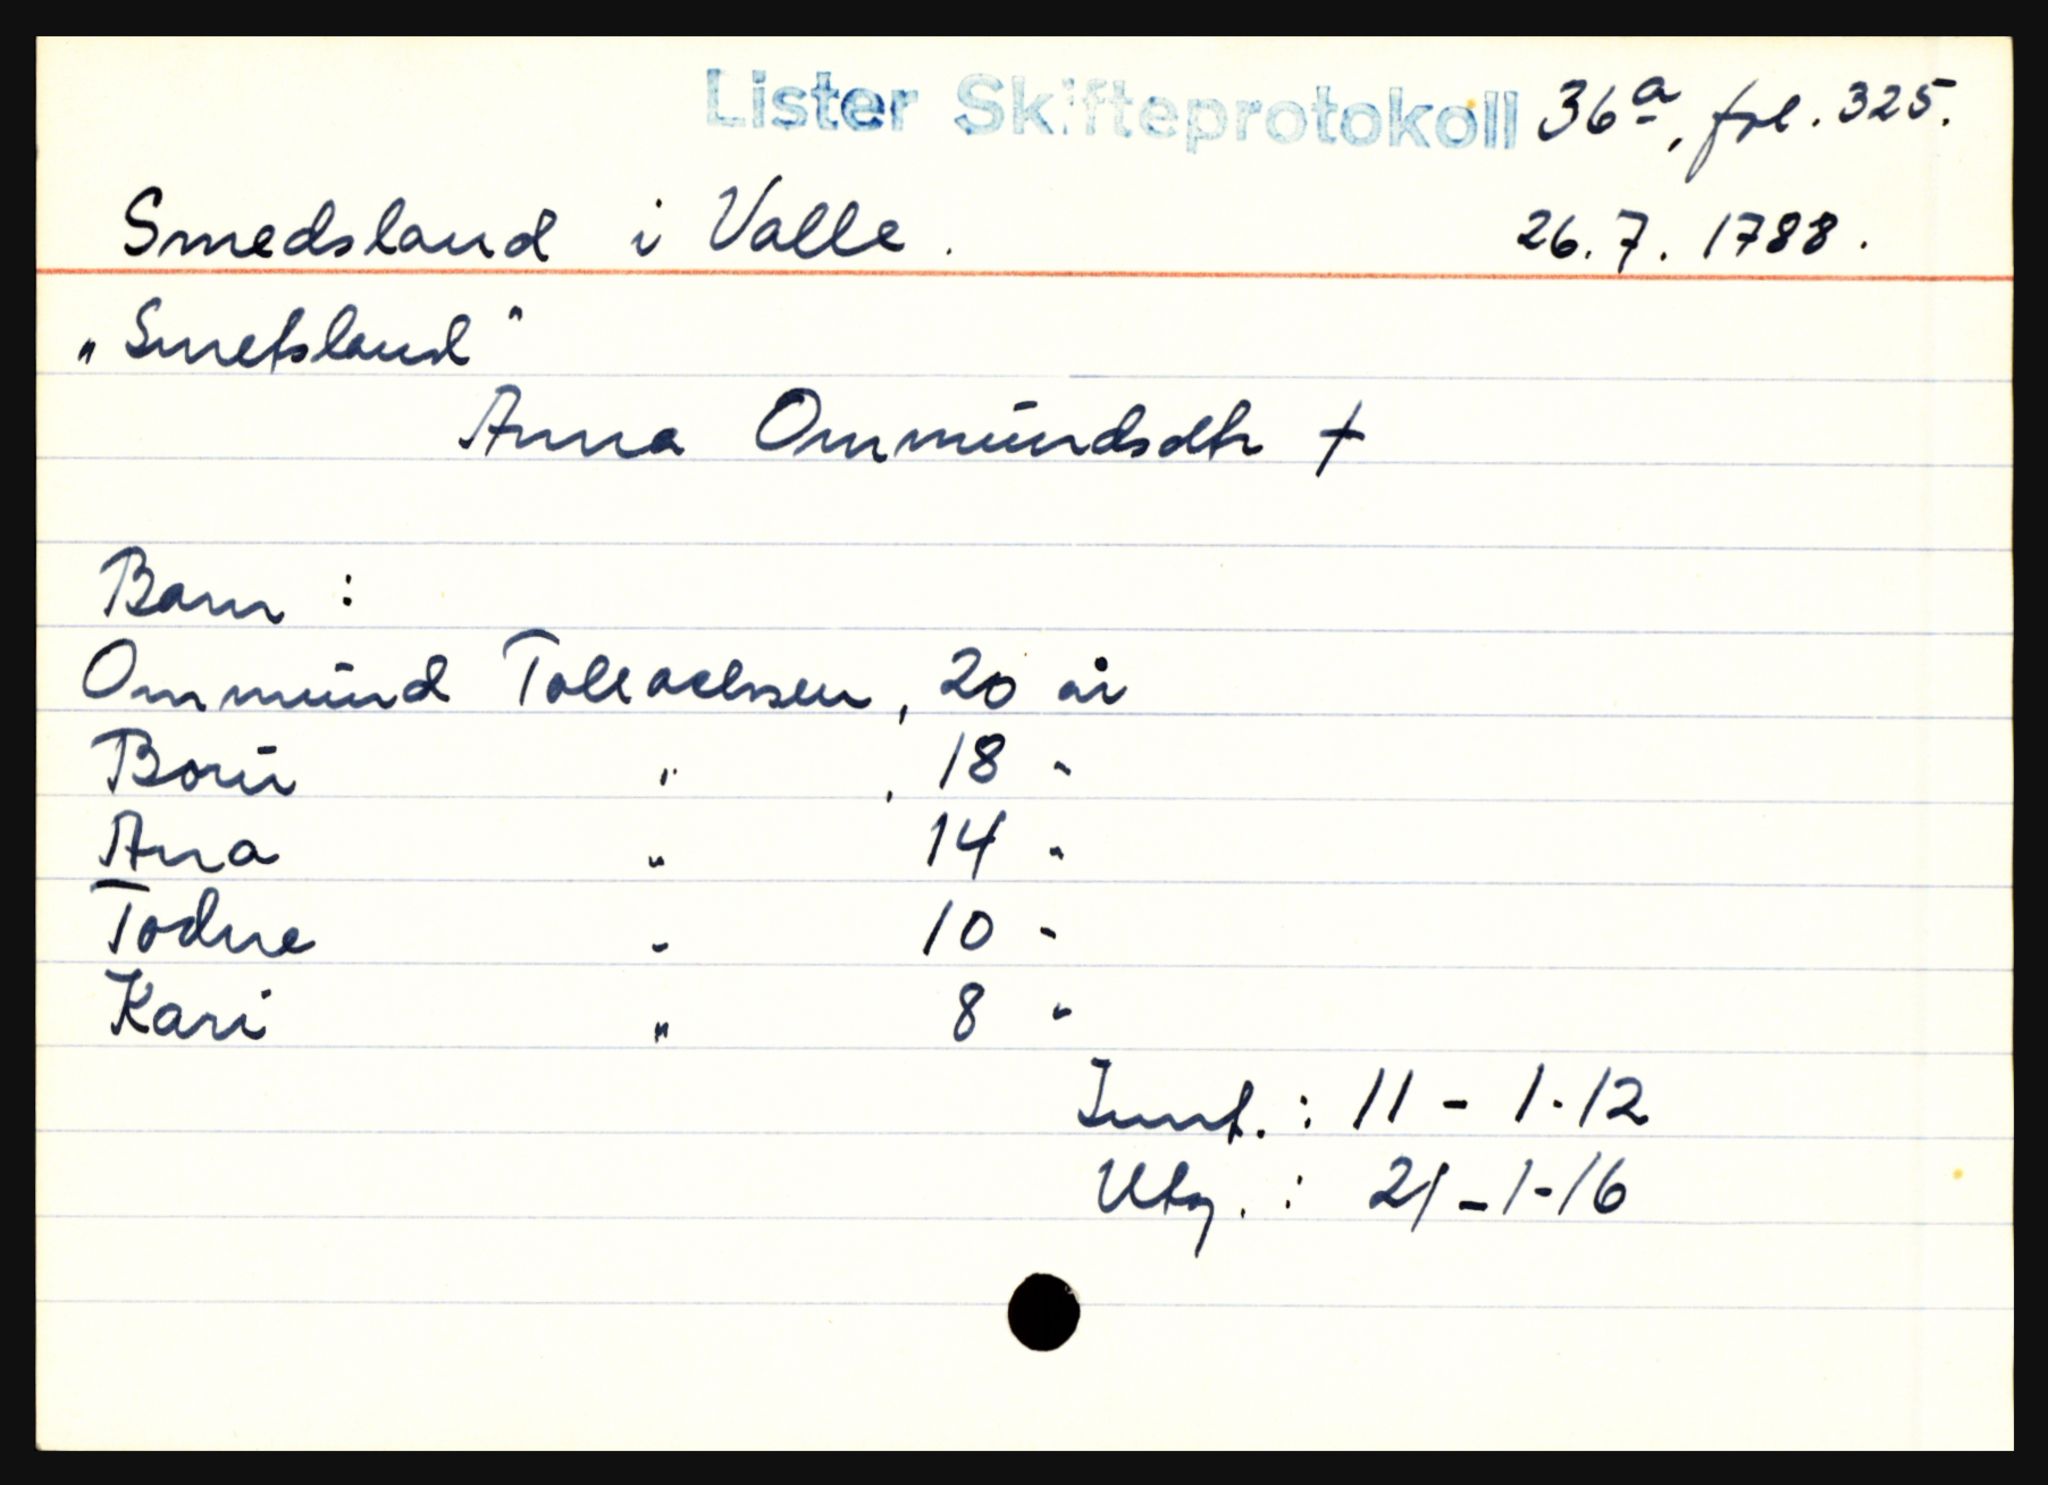 Lister Skifteprotokoll 36a, fol. 325.
Smedsland i Valle. 26.7.1788.
„Smetsland"
Anna Ommundsdtr †
Barn :
Ommund Tolleachsen, 20 år
Boru " , 18 "
Ana " 14 "
Todne " 10 "
Kari " 8 "
Innt. : 11 - 1-12
Utg. : 21 - 1-16